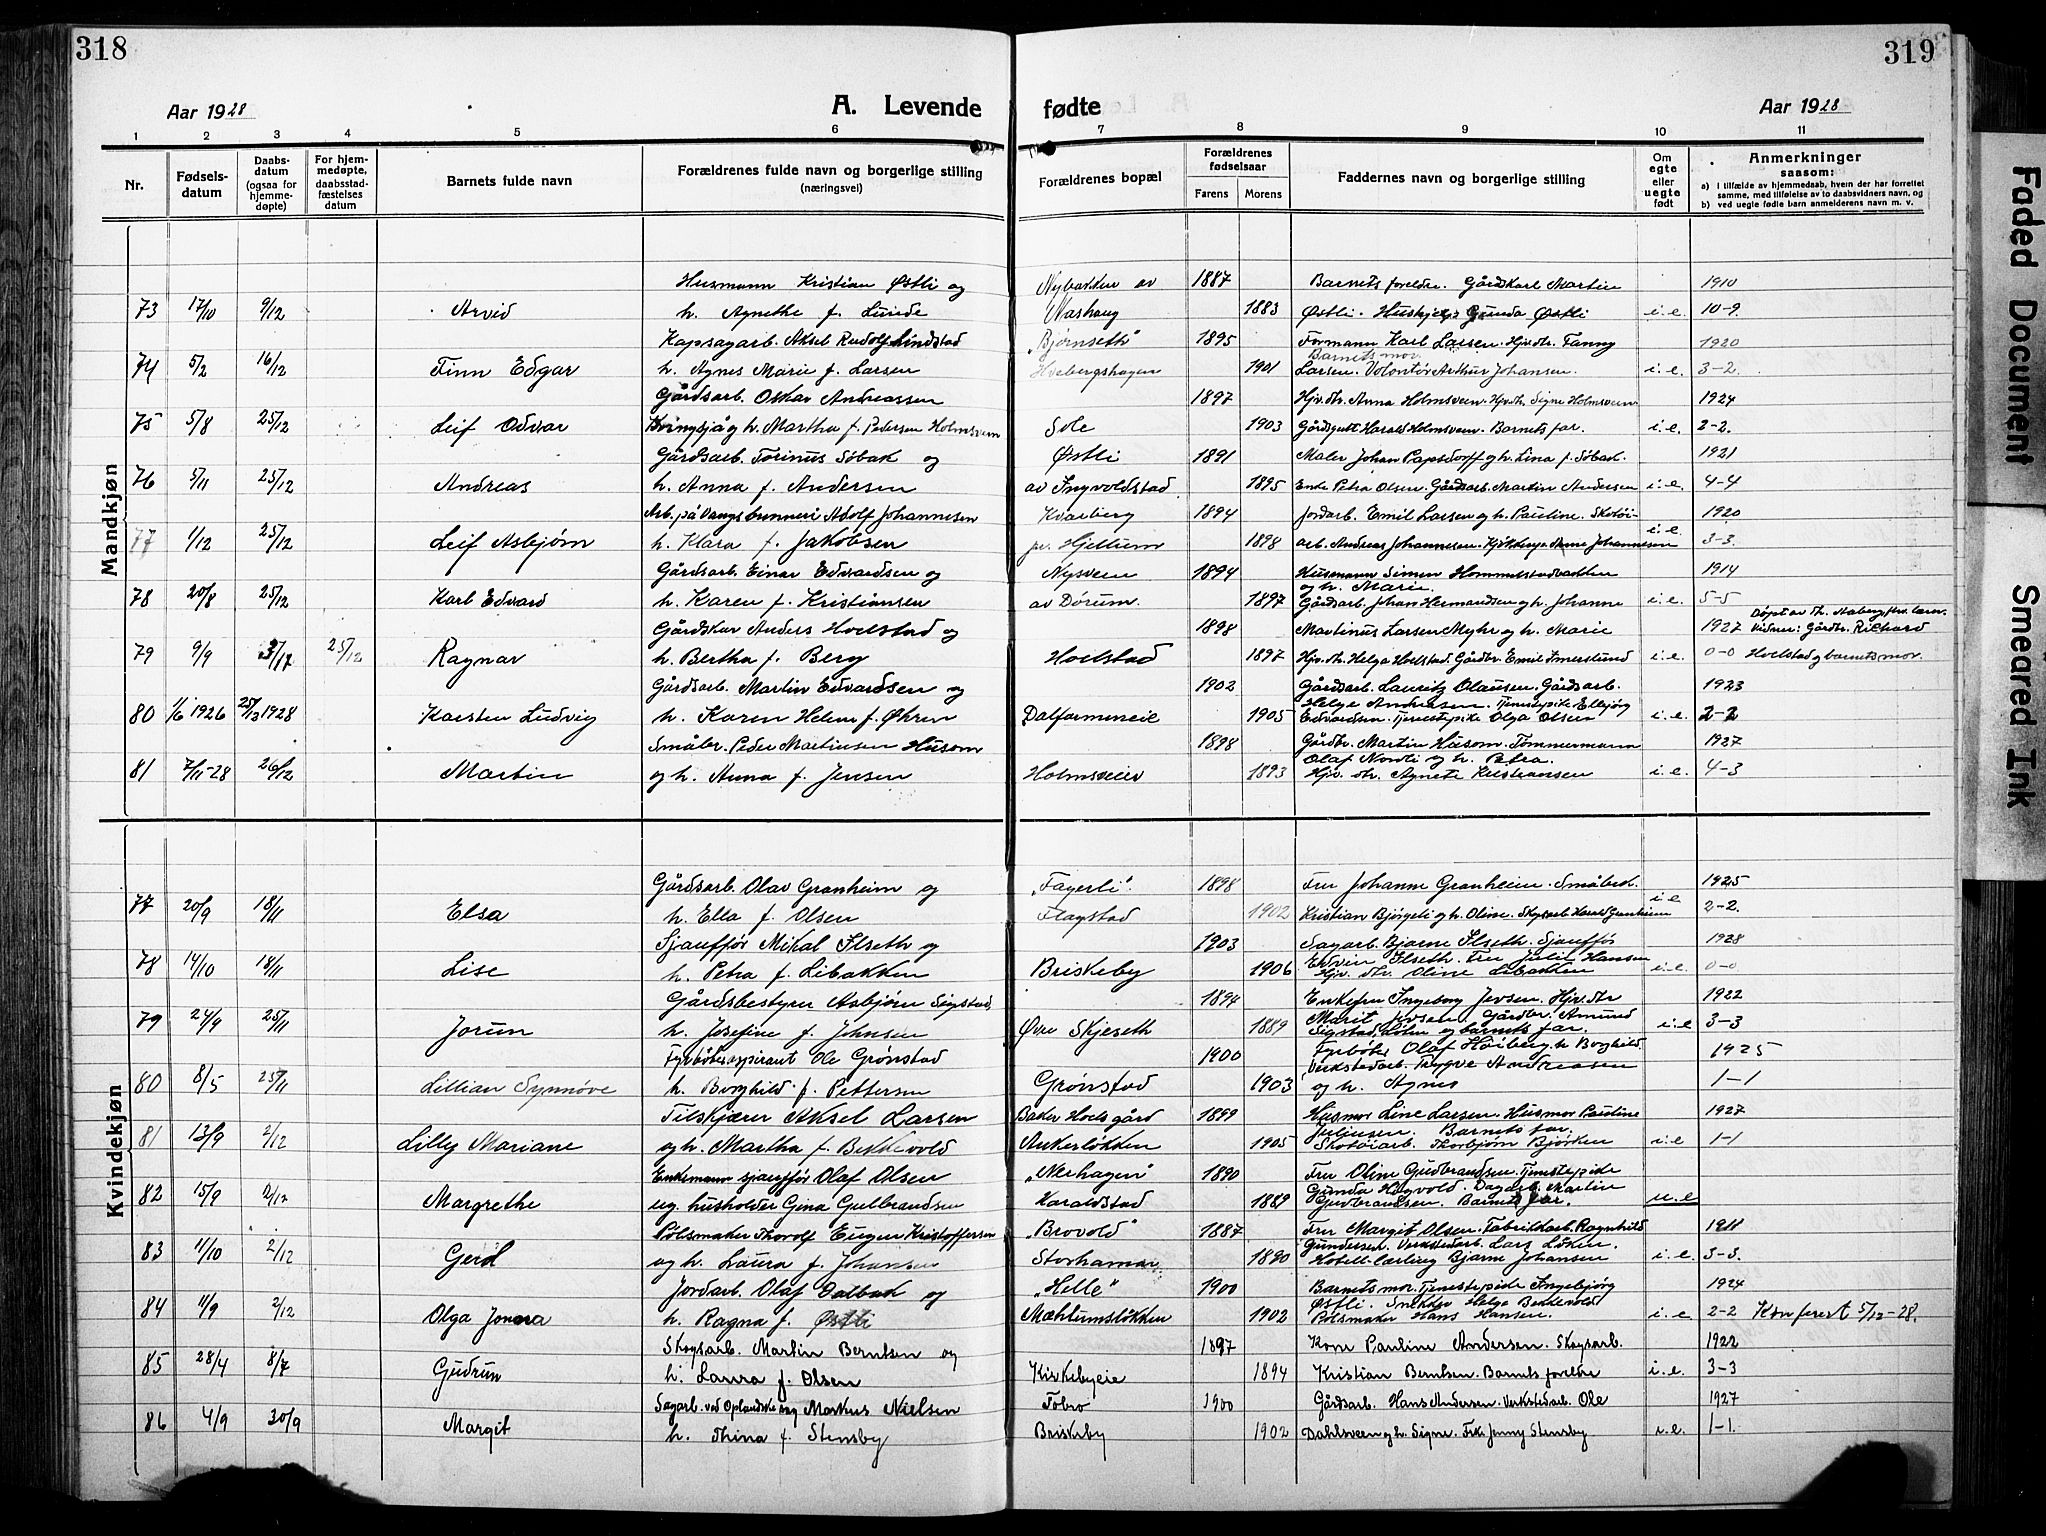 318
319
Aar 1928
A. Levende fødte
Aar 1928
1 2 3 4 5 6 7 8 9 10 11
Nr.
Fødsels-datum
Daabs-datum (ogsaa for hjemme-døpte)
For hjem-medøpte, daabsstad-fæstelses datum
Barnets fulde navn
Forældrenes fulde navn og borgerlige stilling (næringsvei)
Forældrenes bopæl
Forældrenes fødselsaar
Farens Morens
Faddernes navn og borgerlige stilling
Om egte eller uegte født
Anmerkninger saasom:
a) i tilfælde av hjemmedaab, hvem der har forrettet samme, med tilføielse av to daabsvidners navn, og
b) ved uegte fødte barn anmelderens navn m. v.
Mandkjøn
Husmann Kristian Østli og 1887 Barnets foreldre. Gårdskarl Martin 1910
73 17/10 9/12 Arvid h. Agnethe f. Lunde Nashaug 1883 Østli. Gunda Østli i.e. 10-9
Kapsagarb. Aksel Rudolf Lindstad „Bjørnseth" 1895 Formann Karl Larsen. Hjv. dtr. Fanny 1920
Barnets mor.
74 5/2 16/12 Finn Edgar h. Agnes Marie f. Larsen Hvebergshagen 1901 Larsen. Volontør Arthur Johansen. i.e. 3-2.
Gårdsarb. Oskar Andreassen 1897 Hjv. dtr. Anna Holmsveen. Hjv. dtr. Signe Holmsveen 1924
75 5/8 25/12 Leif Odvar h. Martha f. Pedersen Holmsveen Sole 1903 Gårdsgutt Harald Holmsveen. Barnets far. i.e. 2-2.
Gårdsarb. Torinus Søbak og Østli 1891 Maler Johan Papsdorff og h. Lina f. Søbak. 1921
76 5/11 25/12 Andreas h. Anna f. Andersen av Ingvoldstad 1895 Enke Petra Olsen. Gårdsarb. Martin Andersen i.e. 4-4
Arb. på Vangsbrenneri Adolf Johannesen Kvarberg 1894 Jordarb. Emil Larsen og h. Pauline. Skotøi- 1920
77 1/12 25/12 Leif Asbjørn h. Klara f. Jakobsen pr. Hjellum 1898 arb. Andreas Johannesen. Anne Johannesen i.e. 3-3.
Gårdsarb. Einar Edvardsen og Nysveen 1894 Husmann Simen Hommelstadbakken 1914
og h. Marie.
78 20/8 25/12 Karl Edvard h. Karen f. Kristiansen av Dørum. 1897 Gårdsarb. Johan Hermandsen og h. Johanne i.e. 5-5
Døpt av Th. Aaberg,
Anders Hoelstad og 1898 Martinus Larsen Myhr og h. Marie 1927 Vidner: Gårdbr. Richard
79 9/9 3/12 25/12 Ragnar h. Bertha f. Berg Hoelstad 1897 Hjv. dtr. Helga Hoelstad. Gårdbr. Emil Imerslund i.e. 0-0 Hoelstad og barnets mor.
Gårdsarb. Martin Edvardsen og 1902 Gårdsarb. Lauritz Olausen. Gårdsarb. 1923
Helge Andreasen. Tjenestepike Ellbjørg
80 1/6 1926 25/12 1928 Karsten Ludvig h. Karen Helene f. Øhren Dalfarmeneie 1905 Edvardsen. Tjenestepike Olga Olsen i.e. 2-2
Småbr. Peder Martinsen Husom 1898 Gårdbr. Martin Husom. Tømmermann 1927
Olaf Nordli og h. Petra.
81 7/11-28 26/12 Martin og h. Anna f. Jensen Holmsveen 1893 Hjv. dtr. Agnete Kristiansen i.e. 4-3
Kvindekjøn
Gårdsarb. Olav Granheim og „Fagerli". 1898 Fru Johanne Granheim. Småbr. 1925
77 20/9 18/11 Elsa h. Ella f. Olsen Flagstad 1902 Kristian Bjørgeli og h. Oline. Skogsarb. Harald Granheim i.e 2-2.
Sjauffør Mikal Ilseth og 1903 Sagarb. Bjarne Ilseth. Sjauffør 1928
Edvin Ilseth. Fru Julie Hansen
78 14/10 18/11 Lise h. Petra f. Libakken Briskeby 1906 Hjv. dtr. Oline Libakken i.e. 0-0
Gårdsbestyrer Asbjørn Sigstad, 1894 Enkefru Ingeborg Jevsen. Hjv. dtr 1922
Marit Jevsen. Gårdbr. Amund
79 24/9 25/11 Jorun h. Josefine f. Johnsen Øvre Skjeseth 1889 Sigstad, Løten og barnets far. i.e 3-3
Fyrbøteraspirant Ole Grønstad 1900 Fyrbøter Olaf Høiberg, h. Borghild. 1925
Verkstedarb. Trygve Andreasen
80 8/5 25/11 Lillian Synnøve h. Borghild f. Pettersen Grønstad 1903 og h. Agnes 1-1
Tilskjærer Aksel Larsen Baker Hoels gård 1899 Husmor Line Larsen. Husmor Pauline 1927
Juliusen. Barnets far.
81 13/9 2/12 Lilly Mariane og h. Martha f. Bekkevold Ankerløkken 1905 Skotøiarb. Thorbjørn Bjørken i.e 1-1
Enkemann sjauffør Olaf Olsen „Nerhagen" 1890 Fru Oline Gudbrandsen. Tjenestepike
Gunda Høgvold. Dagarb. Martin
82 15/9 2/12 Margrethe ug. husholder Gina Gulbrandsen Haraldstad 1889 Gudbrandsen. Barnets far. u.e
Pølsmaker Thorolf Eugen Kristoffersen „Brovold" 1887 Fru Margit Olsen. Fabrikkarb. Ragnhild 1911
Gundersen. Verkstedarb. Lars Løken.
83 11/10 2/12 Gerd og h. Laura f. Johansen Storhamar 1890 Hotell-lærling Bjarne Johansen i.e. 3-3.
Jordarb. Olaf Dalbak og „Helle" 1900 Barnets mor. Tjenestepike Ingebjørg 1924
Østli. Snekker Helge Bekkevold
84 11/9 2/12 Olga Jonera h. Ragna f. Østli Mæhlumsløkken 1902 Pølsmaker Hans Hansen. i.e 2-2 Konferert 5/12-28.
Skogsarb. Martin Berntsen og 1897 Kone Pauline Andersen. Skogsarb. 1922
85 28/4 8/7 Gudrun h. Laura f. Olsen Kirkebyeie 1894 Kristian Berntsen. Barnets foreldre i.e. 3-3
Sagarb. ved Oplandske sag Markus Nielsen Fobro 1900 Gårdsarb. Hans Andersen. Verkstedarb. Ole 1927
86 4/9 30/9 Margit h. Thina f. Stensby Briskeby 1902 Dahlsveen og h. Signe. Frk. Jenny Stensby i.e. 1-1.
Faded Document
Smeared Ink